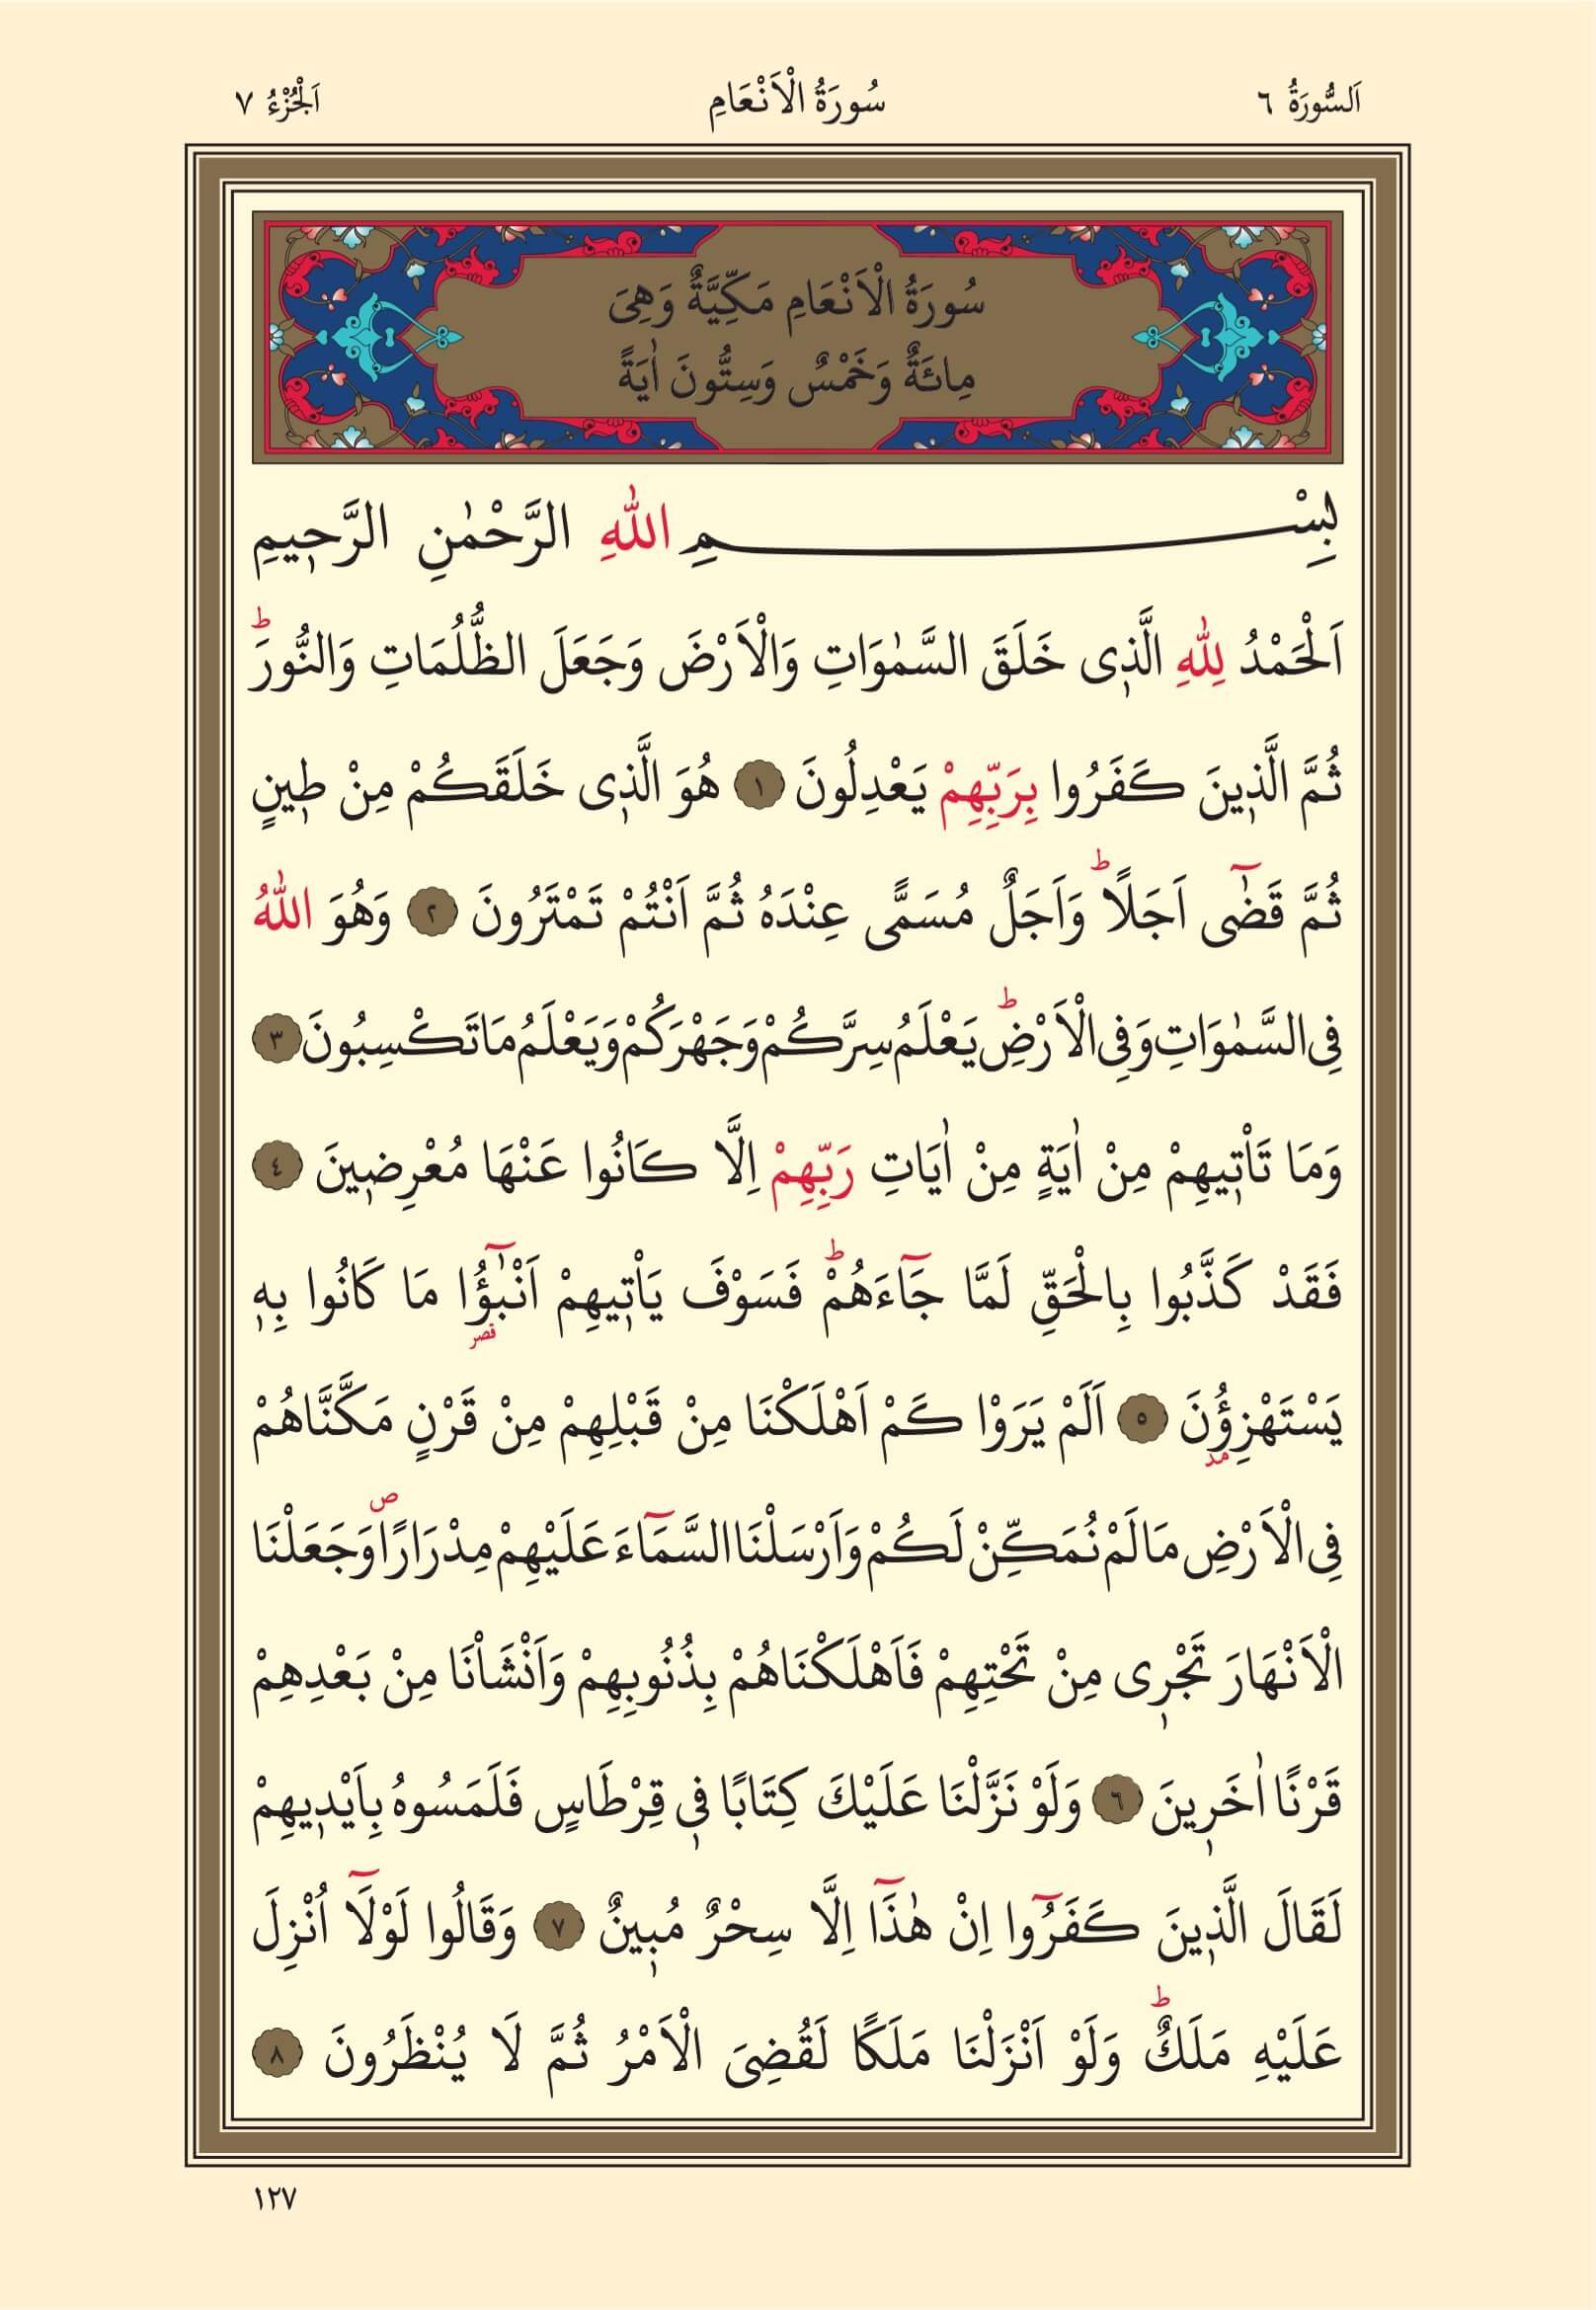 اَلسُّورَةُ ٦ سُورَةُ الْاَنْعَامِ اَلْجُزْءُ ٧
سُورَةُ الْاَنْعَامِ مَكِّيَّةٌ وَهِىَ
مِائَةٌ وَخَمْسٌ وَسِتُّونَ اٰيَةً
بِسْمِ اللّٰهِ الرَّحْمٰنِ الرَّح۪يمِ
اَلْحَمْدُ لِلّٰهِ الَّذ۪ى خَلَقَ السَّمٰوَاتِ وَالْاَرْضَ وَجَعَلَ الظُّلُمَاتِ وَالنُّورَۜ
ثُمَّ الَّذ۪ينَ كَفَرُوا بِرَبِّهِمْ يَعْدِلُونَ ١ هُوَ الَّذ۪ى خَلَقَكُمْ مِنْ ط۪ينٍ
ثُمَّ قَضٰٓى اَجَلًاۜ وَاَجَلٌ مُسَمًّى عِنْدَهُ ثُمَّ اَنْتُمْ تَمْتَرُونَ ٢ وَهُوَ اللّٰهُ
فِى السَّمٰوَاتِ وَفِى الْاَرْضِۜ يَعْلَمُ سِرَّكُمْ وَجَهْرَكُمْ وَيَعْلَمُ مَا تَكْسِبُونَ ٣
وَمَا تَأْت۪يهِمْ مِنْ اٰيَةٍ مِنْ اٰيَاتِ رَبِّهِمْ اِلَّا كَانُوا عَنْهَا مُعْرِض۪ينَ ٤
فَقَدْ كَذَّبُوا بِالْحَقِّ لَمَّا جَٓاءَهُمْۜ فَسَوْفَ يَأْت۪يهِمْ اَنْبٰٓؤُ۬ا مَا كَانُوا بِه۪
قصر
يَسْتَهْزِؤُ۫نَ ٥ اَلَمْ يَرَوْا كَمْ اَهْلَكْنَا مِنْ قَبْلِهِمْ مِنْ قَرْنٍ مَكَّنَّاهُمْ
مد
فِى الْاَرْضِ مَا لَمْ نُمَكِّنْ لَكُمْ وَاَرْسَلْنَا السَّمَٓاءَ عَلَيْهِمْ مِدْرَارًاۖ وَجَعَلْنَا
الْاَنْهَارَ تَجْر۪ى مِنْ تَحْتِهِمْ فَاَهْلَكْنَاهُمْ بِذُنُوبِهِمْ وَاَنْشَاْنَا مِنْ بَعْدِهِمْ
قَرْنًا اٰخَر۪ينَ ٦ وَلَوْ نَزَّلْنَا عَلَيْكَ كِتَابًا ف۪ى قِرْطَاسٍ فَلَمَسُوهُ بِاَيْد۪يهِمْ
لَقَالَ الَّذ۪ينَ كَفَرُٓوا اِنْ هٰذَٓا اِلَّا سِحْرٌ مُب۪ينٌ ٧ وَقَالُوا لَوْلَٓا اُنْزِلَ
عَلَيْهِ مَلَكٌۜ وَلَوْ اَنْزَلْنَا مَلَكًا لَقُضِىَ الْاَمْرُ ثُمَّ لَا يُنْظَرُونَ ٨
١٢٧